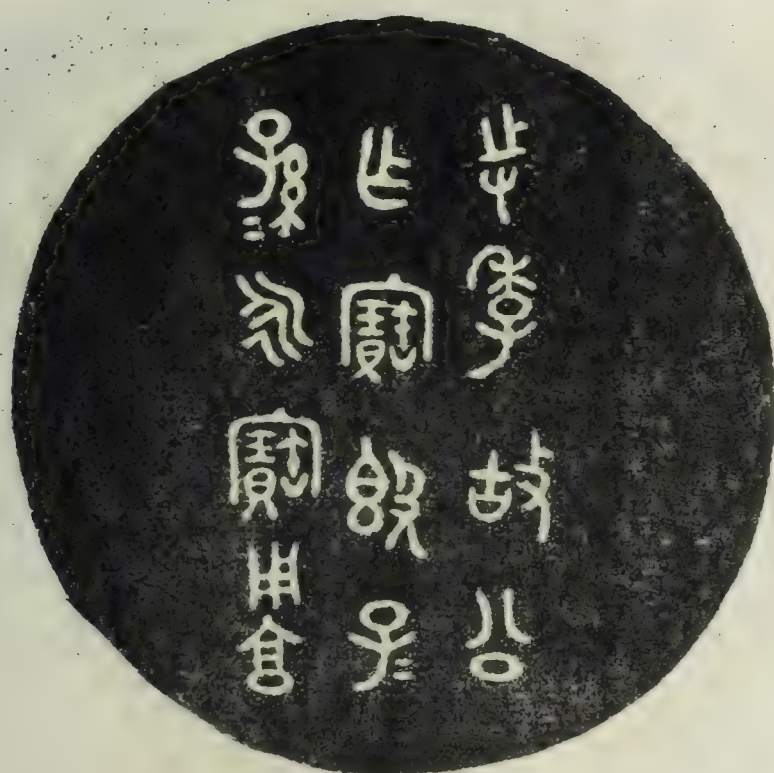 寺季故公
乍寶𣪘子=
孫=永寶用亯